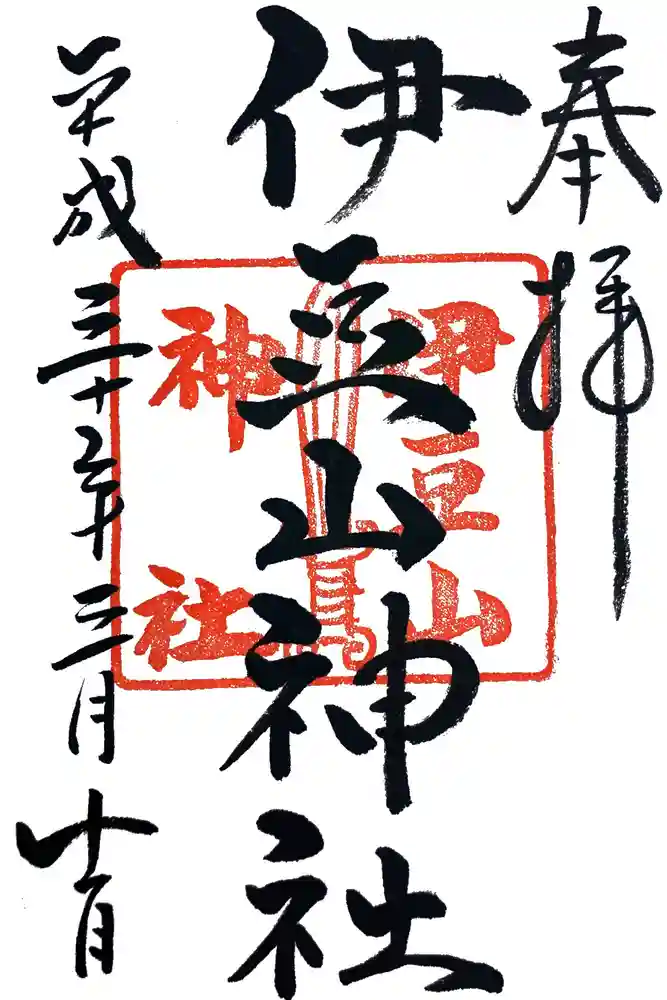 奉拝
伊豆山神社
伊豆山
神社
平成三十年三月